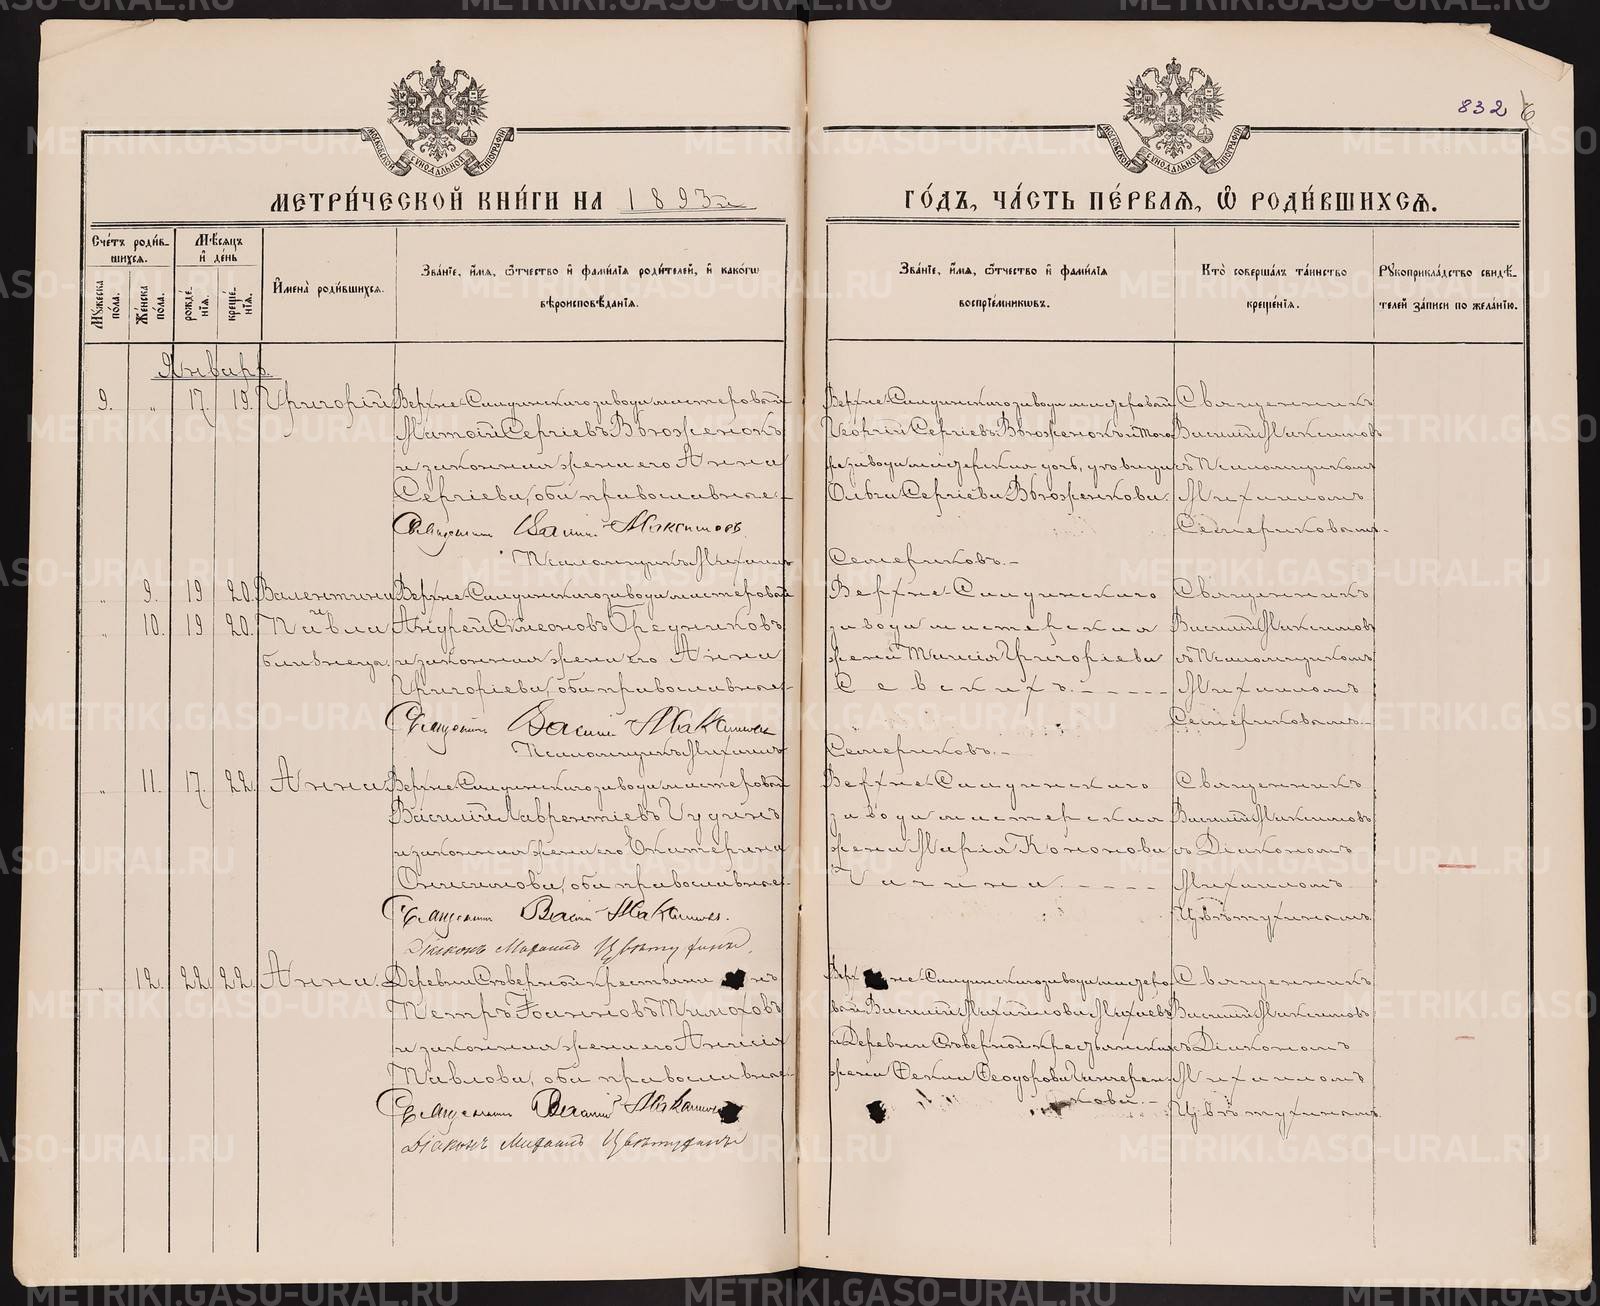 832
МЕТРИ́ЧЕСКОЙ КНИ́ГИ НА 1893й ГО́ДЪ, ЧА́СТЬ ПЕ́РВАѦ, Ѡ РОДИ́ВШИХСѦ.
МОСКОВСКОЙ СѴНОДАЛЬНОЙ ТИПОГРАФІИ
МОСКОВСКОЙ СѴНОДАЛЬНОЙ ТИПОГРАФІИ
Сче́тъ роди́в-
шихсѧ.
Мꙋжеска по́ла.
Же́нска по́ла.
Мѣ́сѧцъ
и҆ де́нь
рожде́нїѧ.
креще́нїѧ.
И҆мена̀ роди́вшихсѧ.
Зва́нїе, и҆́мѧ, ѻ҆́тчество и҆ фами́лїѧ роди́телей, и҆ како́гѡ
вѣроисповѣ́данїѧ.
Зва́нїе, и҆́мѧ, ѻ҆́тчество и҆ фами́лїѧ
воспрїе́мникѡвъ.
Кто̀ соверша́лъ та́инство
креще́нїѧ.
Рꙋкоприкла́дство свидѣ́-
телей за́писи по жела́нїю.
Январь.
9. „ 17. 19. Григорій
Верхне-Салдинскаго завода мастеровой
Матѳій Сергіевъ Вьюженокъ
и законная жена его Анна
Сергіева, оба православные.-
Священникъ Василій Максимовъ
Псаломщикъ Михаилъ Семериковъ.-
Верхне-Салдинскаго завода мастеровой
Георгій Сергіевъ Вьюженокъ и того
же завода мастерская дочь, девица
Ольга Сергіева Вьюженкова.
Священникъ
Василій Максимовъ
съ Псаломщикомъ
Михаиломъ
Семериковымъ.-
„ 9. 19 20. Валентина
и
„ 10. 19 20. Павла
близнеца.
Верхне-Салдинскаго завода мастеровой
Андрей Симеоновъ
и законная жена его Анна
Григоріева, оба православные.-
Священникъ Василій Максимовъ
Псаломщикъ Михаилъ Семериковъ.-
Верхне-Салдинскаго
завода мастерская
жена Таисія Григоріева
Севскихъ.-----
Священникъ
Василій Максимовъ
съ Псаломщикомъ
Михаиломъ
Семериковымъ.-
„ 11. 17. 22. Анна.
Верхне-Салдинскаго завода мастеровой
Василій Лаврентіевъ Гудинъ
и законная жена его Екатерина
Онисимова, оба православные.-
Священникъ Василій Максимовъ.
Діаконъ Михаилъ Цвѣтухинъ.
Верхне-Салдинскаго
завода мастерская
жена Марія Кононова
-----
Священникъ
Василій Максимовъ
съ Діакономъ
Михаиломъ
Цвѣтухинымъ.
„ 12. 22. 22. Анна.
Деревни Сѣверной крестьянинъ
Петръ Іоанновъ Тимоховъ
и законная жена его Анисія
Павлова, оба православные.-
Священникъ Василій Максимовъ
Діаконъ Михаилъ Цвѣтухинъ
Верхне-Салдинскаго завода мастеро-
вой Василій Михайловъ
и Деревни Сѣверной крестьянская
жена Ѳекла Ѳеодорова
кова.-
Священникъ
Василій Максимовъ
съ Діакономъ
Михаиломъ
Цвѣтухинымъ.
METRIKI.GASO-URAL.RU